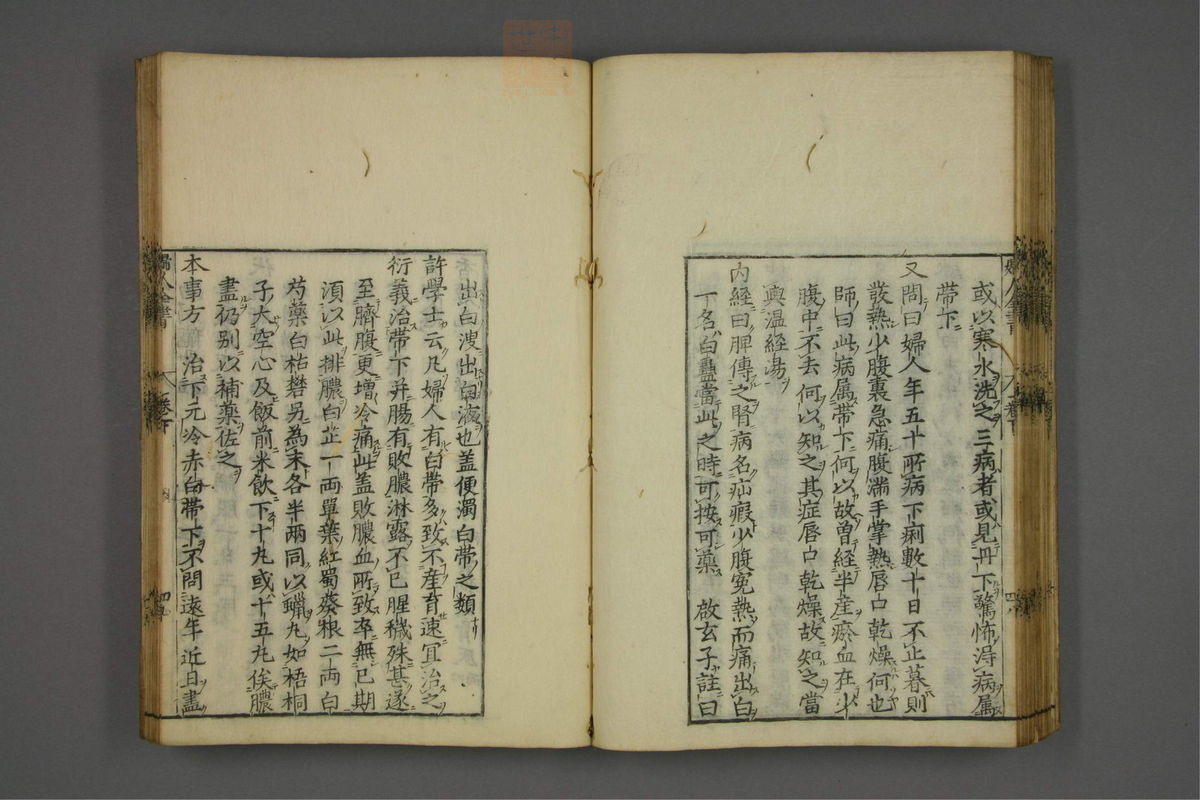 或以寒水洗之三病者或見丹下驚怖得病属
帶下
又問曰婦人年五十所病下痢數十日不止暮則
發熱少腹裏急痛腹滿手掌熱唇口乾燥何也
師曰此病属帶下何以故曾経半産瘀血在少
腹中不去何以知之其症唇口乾燥故知之當
與温経湯
內経曰脾傳之腎病名疝瘕少腹寃熱而痛出白
一名白蠱當此之時可按可藥 啟玄子註曰
出白溲出白液也盖便濁白帶之類
許學士云凡婦人有白帶多致不産育速冝治之
衍義治帶下并腸有敗膿淋露不已腥穢殊甚遂
至臍腹更増冷痛此盖敗膿血所致卒無已期
湏以此排膿白芷一両單葉紅蜀葵根二両白
芍藥白枯礬另為末各半兩同以蠟丸如梧桐
子大空心及飯前米飲下十丸或十五丸俟膿
盡仍別以補藥佐之
本事方 治下元冷赤白帶下不問遠年近日盡